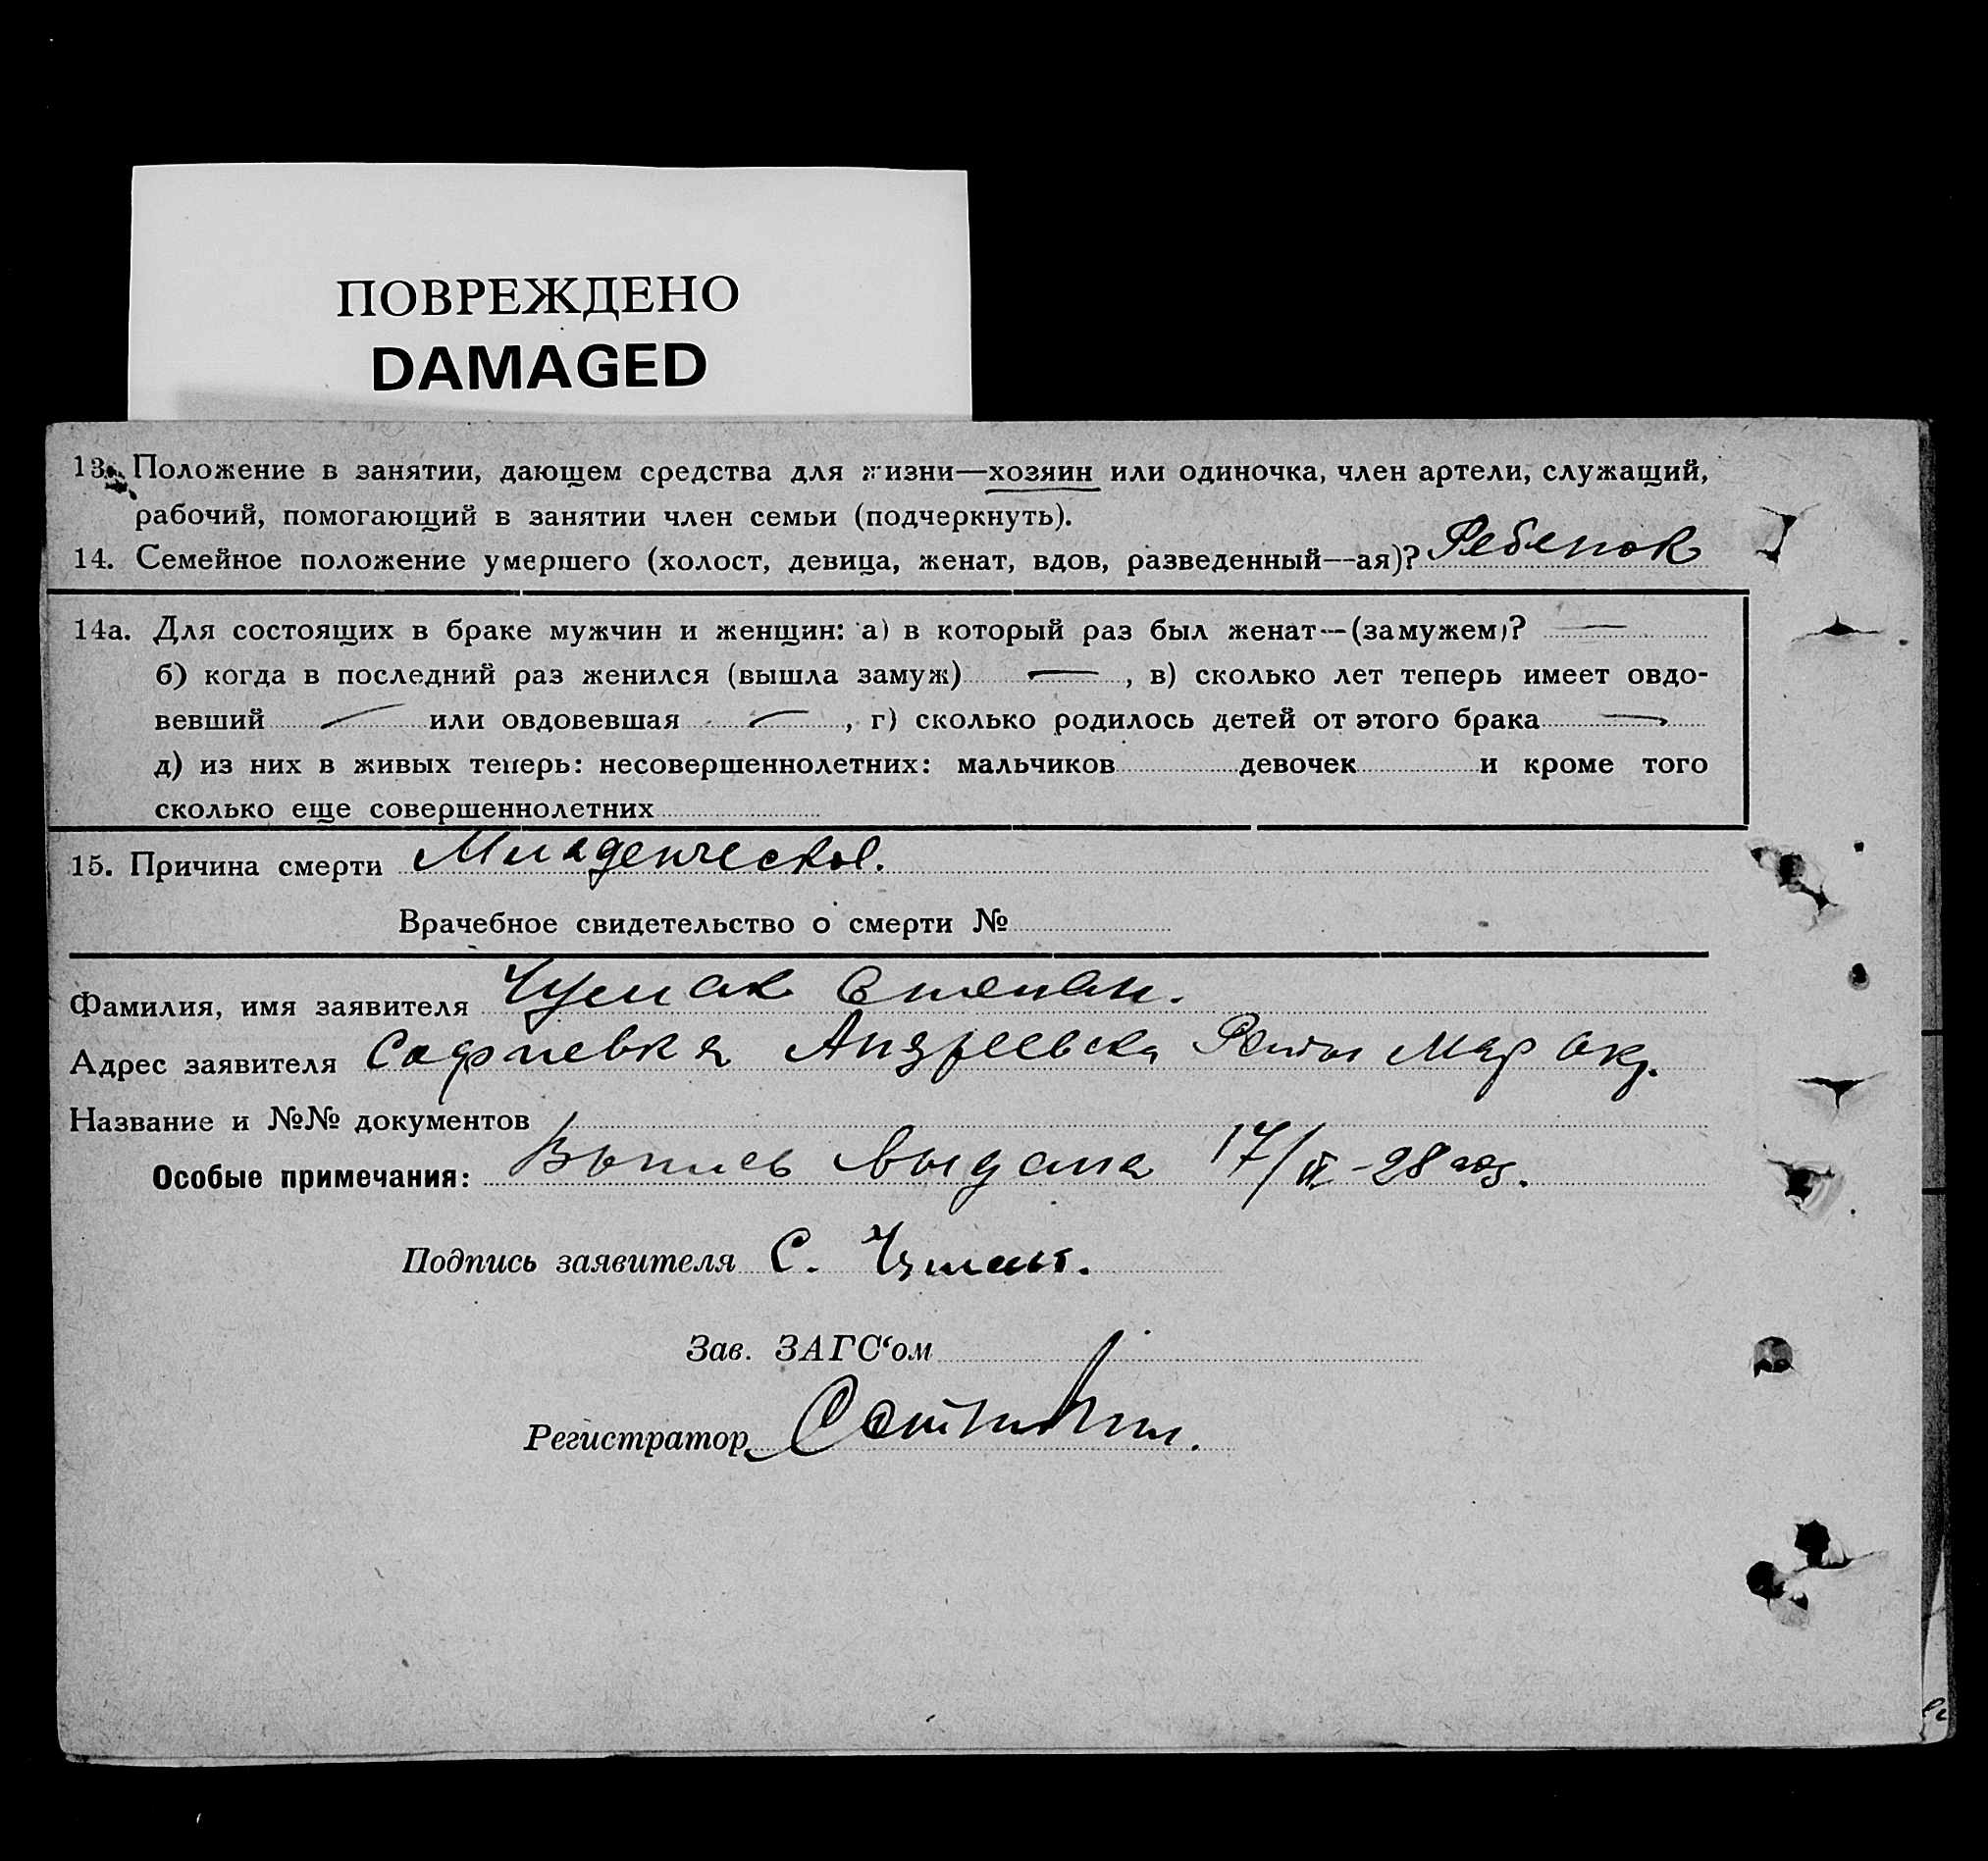 ПОВРЕЖДЕНО
DAMAGED
13. Положение в занятии, дающем средства для жизни—хозяин или одиночка, член артели, служащий,
рабочий, помогающий в занятии член семьи (подчеркнуть).
14. Семейное положение умершего (холост, девица, женат, вдов, разведенный—ая)? Ребенок
14а. Для состоящих в браке мужчин и женщин: а) в который раз был женат—(замужем)? —
б) когда в последний раз женился (вышла замуж) — , в) сколько лет теперь имеет овдо-
вевший — или овдовевшая — , г) сколько родилось детей от этого брака —
д) из них в живых теперь: несовершеннолетних: мальчиков девочек и кроме того
сколько еще совершеннолетних
15. Причина смерти Младенческая.
Врачебное свидетельство о смерти №
Фамилия, имя заявителя Чумак Степан.
Адрес заявителя Софиевка Андреевска Мар окр.
Название и №№ документов
Особые примечания: Выпись выдана 17/ -28 год.
Подпись заявителя С. Чумак.
Зав. ЗАГС‘ом
Регистратор